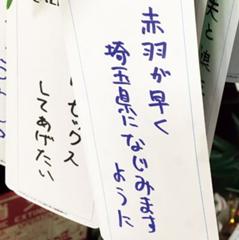 赤羽が早く
埼玉県になじみます
ように
セックス
してあげたい
夫と